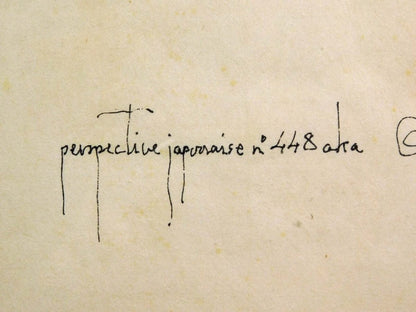 perspective japonaise n° 448 aka